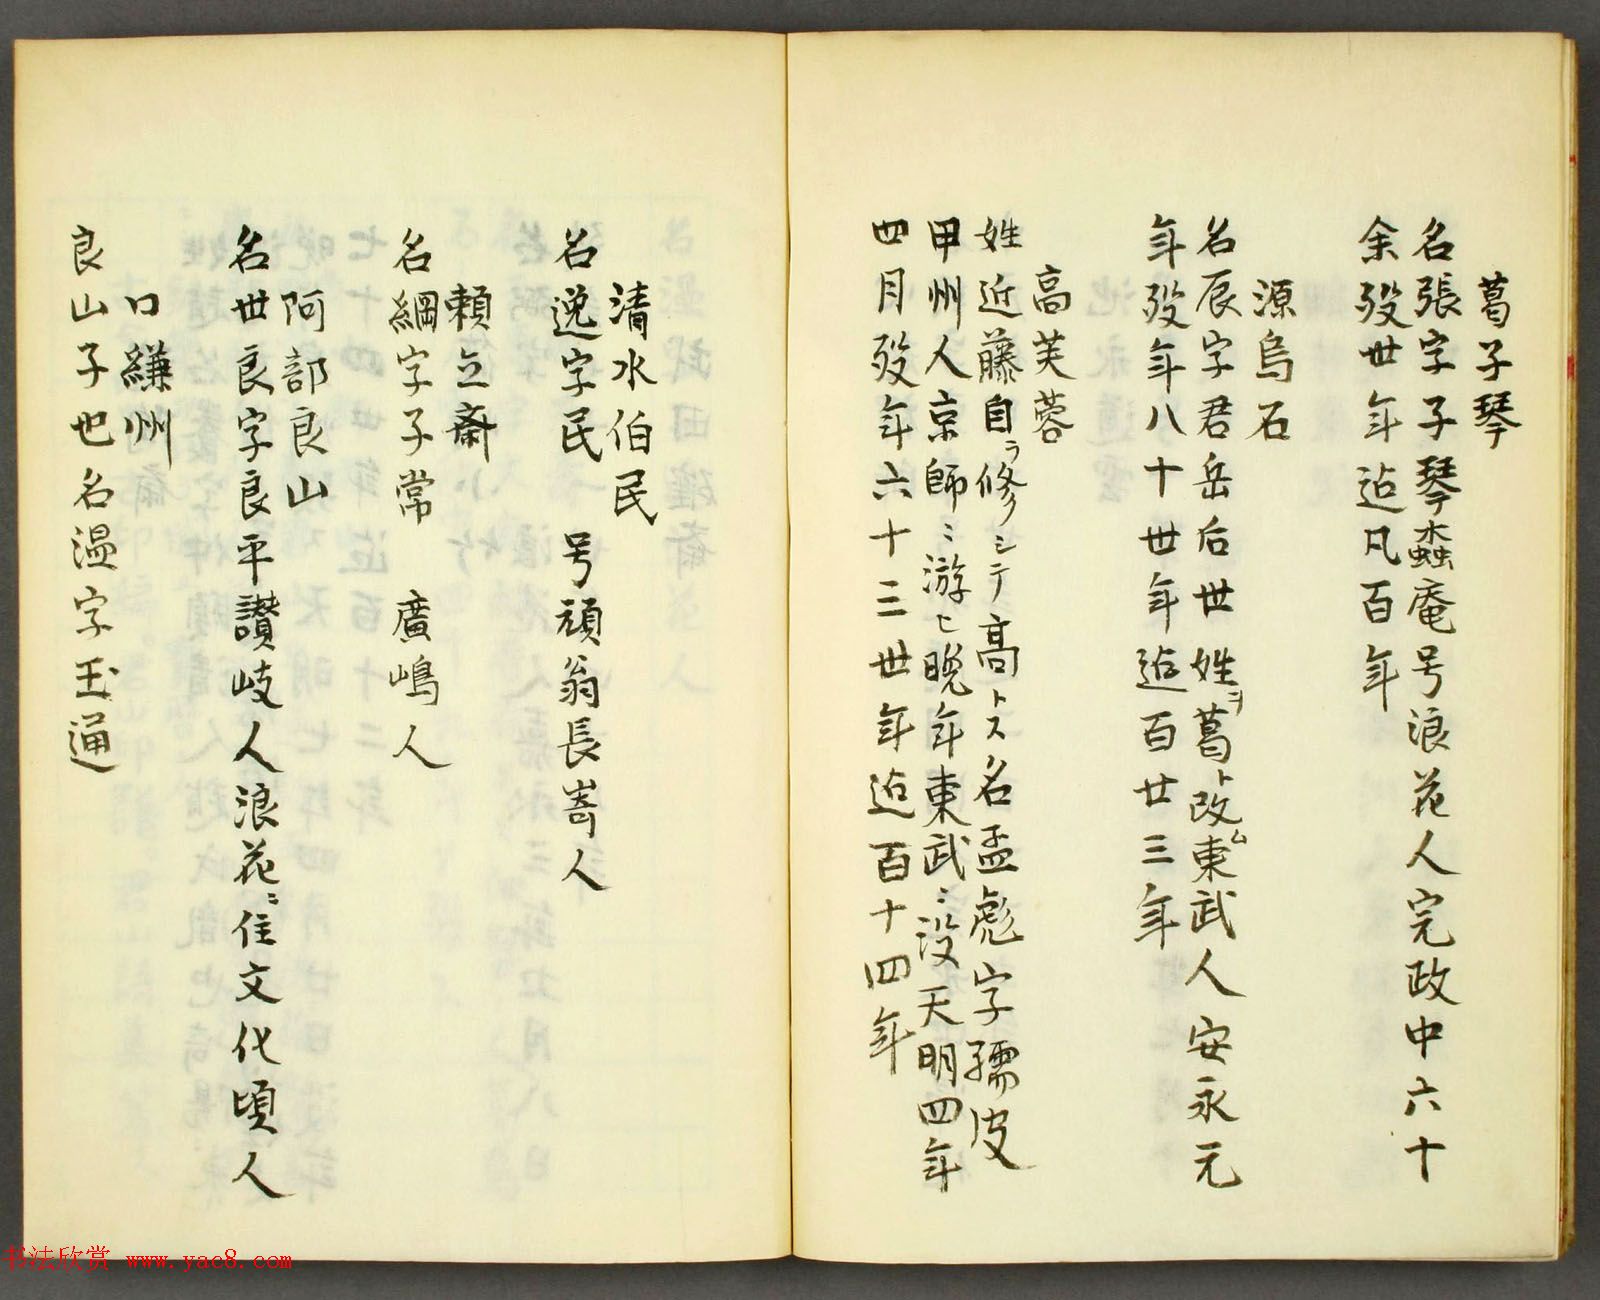 葛子琴
名張字子琴螙庵号浪花人完政中六十
余歿世年迨凡百年
源烏石
名辰字君岳后世姓ヲ葛ト改ム東武人安永元
年歿年八十世年迨百廿三年
高芙蓉
姓近藤自ラ修メシテ高トス名孟彪字孺皮
甲州人京師ニ游ヒ晩年東武ニ没天明四年
四月歿年六十三世年迨百十四年
清水伯民
名逸字民 号頑翁長嵜人
頼立斎
名綱字子常 廣嶋人
阿部良山
名世良字良平讃岐人浪花ニ住文化頃人
口縑州
良山子也名温字玉通
书法欣赏 www.yac8.com